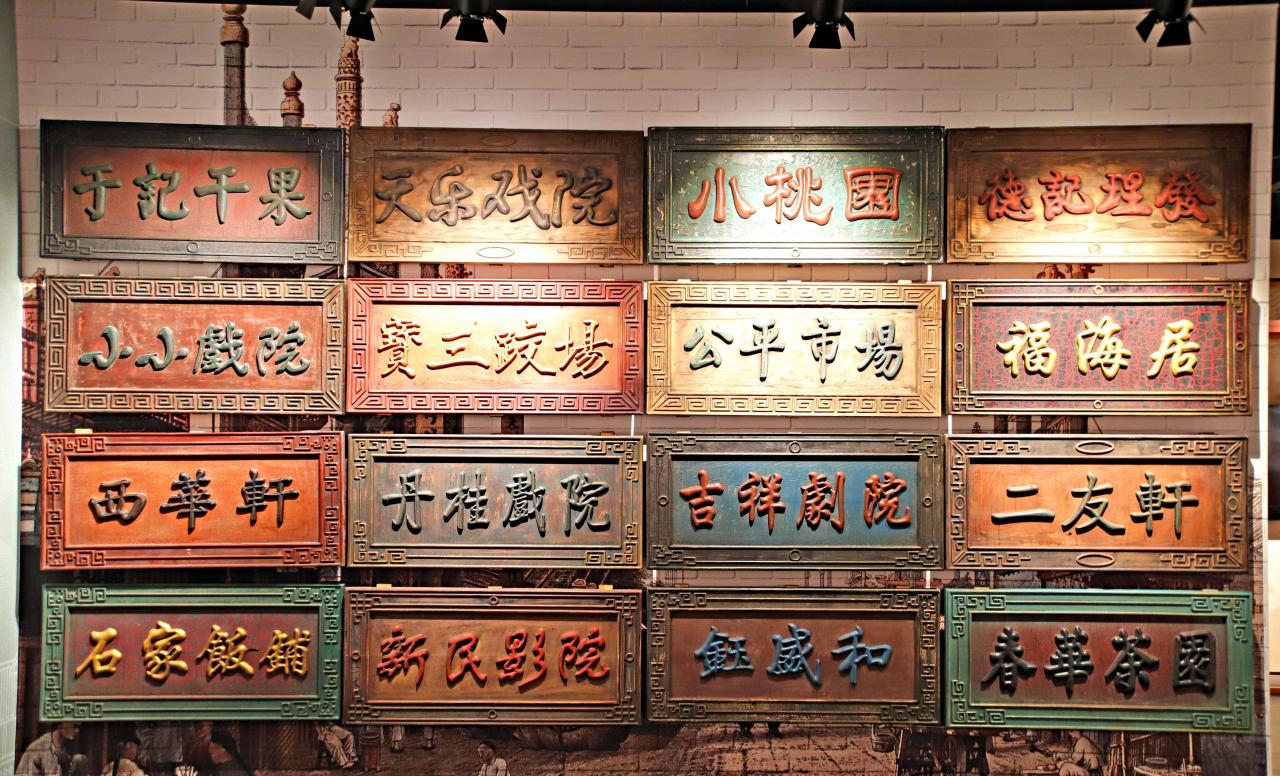 于記干果
天乐戏院
小桃園
德記理發
小小戲院
寶三跤場
公平市場
福海居
西華軒
丹桂戲院
吉祥劇院
二友軒
石家飯鋪
新民影院
鈺盛和
春華茶園